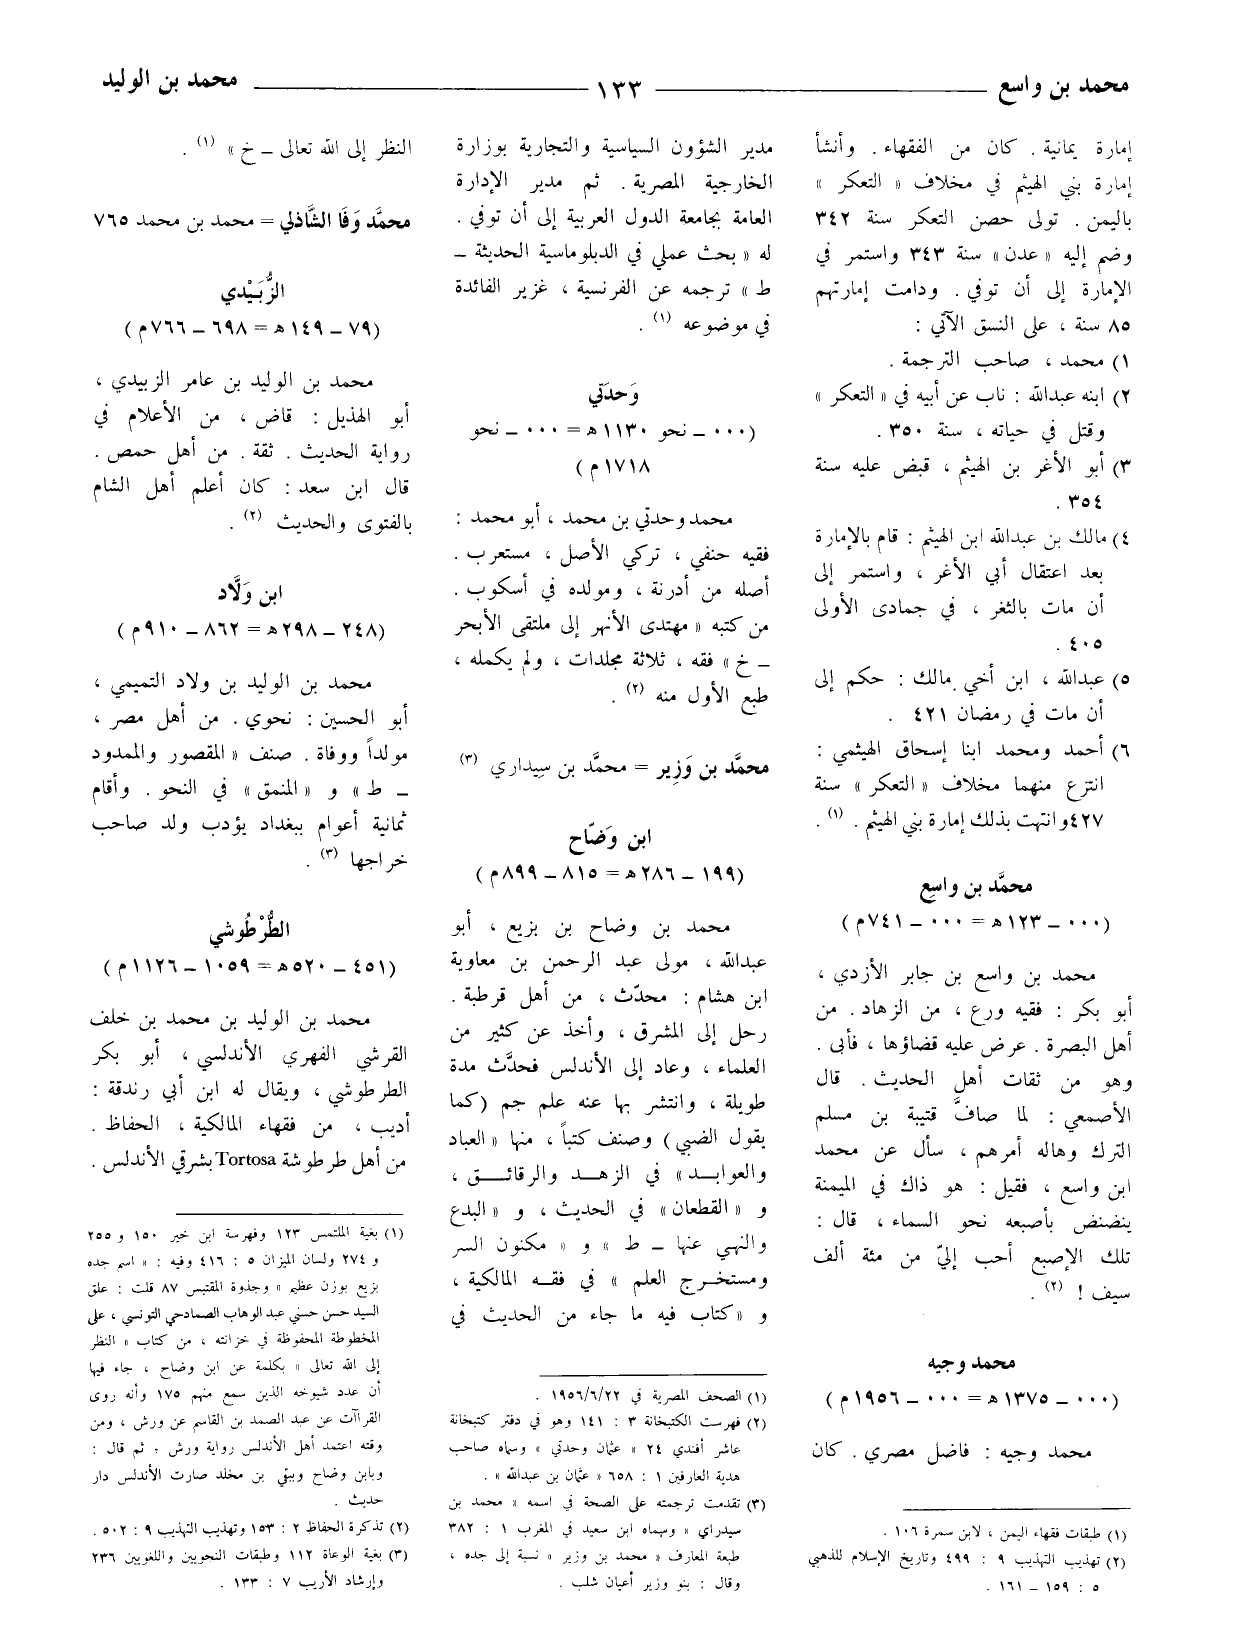 محمد بن واسع ١٣٣ محمد بن الوليد
إمارة يمانية . كان من الفقهاء . وأنشأ
إمارة بني الهيثم في مخلاف « التعكر »
باليمن . تولى حصن التعكر سنة ٣٤٢
وضم إليه « عدن » سنة ٣٤٣ واستمر في
الإمارة إلى أن توفي . ودامت إمارتهم
٨٥ سنة ، على النسق الآتي :
١) محمد ، صاحب الترجمة .
٢) ابنه عبدالله : ناب عن أبيه في « التعكر »
وقتل في حياته ، سنة ٣٥٠ .
٣) أبو الأغر بن الهيثم ، قبض عليه سنة
٣٥٤ .
٤) مالك بن عبدالله ابن الهيثم : قام بالإمارة
بعد اعتقال أبي الأغر ، واستمر إلى
أن مات بالثغر ، في جمادى الأولى
٤٠٥ .
٥) عبدالله ، ابن أخي مالك : حكم إلى
أن مات في رمضان ٤٢١ .
٦) أحمد ومحمد ابنا إسحاق الهيثمي :
انتزع منهما مخلاف « التعكر » سنة
٤٢٧ وانتهت بذلك إمارة بني الهيثم . (١) .
محمَّد بن واسِع
(٠٠٠ ــ ١٢٣ هـ = ٠٠٠ ــ ٧٤١م)
محمد بن واسع بن جابر الأزدي ،
أبو بكر : فقيه ورع ، من الزهاد . من
أهل البصرة . عرض عليه قضاؤها ، فأبى .
وهو من ثقات أهل الحديث . قال
الأصمعي : لما صافَّ قتيبة بن مسلم
الترك وهاله أمرهم ، سأل عن محمد
ابن واسع ، فقيل : هو ذاك في الميمنة
ينضنض بأصبعه نحو السماء ، قال :
تلك الإصبع أحب إليّ من مئة ألف
سيف ! (٢) .
محمد وجيه
(٠٠٠ ــ ١٣٧٥ هـ = ٠٠٠ ــ ١٩٥٦ م)
محمد وجيه : فاضل مصري . كان
(١) طبقات فقهاء اليمن ، لابن سمرة ١٠٦ .
(٢) تهذيب التهذيب ٩ : ٤٩٩ وتاريخ الإسلام للذهبي
٥ : ١٥٩ ــ ١٦١ .
مدير الشؤون السياسية والتجارية بوزارة
الخارجية المصرية . ثم مدير الإدارة
العامة بجامعة الدول العربية إلى أن توفي .
له « بحث عملي في الدبلوماسية الحديثة ــ
ط » ترجمه عن الفرنسية ، غزير الفائدة
في موضوعه (١) .
وَحدَتي
(٠٠٠ ــ نحو ١١٣٠ هـ = ٠٠٠ ــ نحو
١٧١٨ م)
محمد وحدتي بن محمد ، أبو محمد :
فقيه حنفي ، تركي الأصل ، مستعرب .
أصله من أدرنة ، ومولده في أسكوب .
من كتبه « مهتدى الأنهر إلى ملتقى الأبحر
ــ خ » فقه ، ثلاثة مجلدات ، ولم يكمله ،
طبع الأول منه (٢) .
محمَّد بن وَزِير = محمَّد بن سِيداري (٣)
ابن وَضّاح
(١٩٩ ــ ٢٨٦ هـ = ٨١٥ ــ ٨٩٩م)
محمد بن وضاح بن بزيع ، أبو
عبدالله ، مولى عبد الرحمن بن معاوية
ابن هشام : محدّث ، من أهل قرطبة .
رحل إلى المشرق ، وأخذ عن كثير من
العلماء ، وعاد إلى الأندلس فحدَّث مدة
طويلة ، وانتشر بها عنه علم جم (كما
يقول الضبي) وصنف كتباً ، منها « العباد
والعوابد » في الزهد والرقائق ،
و « القطعان » في الحديث ، و « البدع
والنهي عنها ــ ط » و « مكنون السر
ومستخرج العلم » في فقه المالكية ،
و « كتاب فيه ما جاء من الحديث في
(١) الصحف المصرية في ١٩٥٦/٦/٢٢ .
(٢) فهرست الكتبخانة ٣ : ١٤١ وهو في دفتر كتبخانة
عاشر أفندي ٢٤ « عثمان وحدتي » وسماه صاحب
هدية العارفين ١ : ٦٥٨ « عثمان بن عبدالله » .
(٣) تقدمت ترجمته على الصحة في اسمه « محمد بن
سيدراي » وسماه ابن سعيد في المغرب ١ : ٣٨٢
طبعة المعارف « محمد بن وزير » نسبة إلى جده ،
وقال : بنو وزير أعيان شلب .
النظر إلى الله تعالى ــ خ » (١) .
محمَّد وَفَا الشَّاذلي = محمد بن محمد ٧٦٥
الزُّبَيْدي
(٧٩ ــ ١٤٩ هـ = ٦٩٨ ــ ٧٦٦م)
محمد بن الوليد بن عامر الزبيدي ،
أبو الهذيل : قاض ، من الأعلام في
رواية الحديث . ثقة . من أهل حمص .
قال ابن سعد : كان أعلم أهل الشام
بالفتوى والحديث (٢) .
ابن وَلَّاد
(٢٤٨ ــ ٢٩٨ هـ = ٨٦٢ ــ ٩١٠م)
محمد بن الوليد بن ولاد التميمي ،
أبو الحسين : نحوي . من أهل مصر ،
مولداً ووفاة . صنف « المقصور والممدود
ــ ط » و « المنمق » في النحو . وأقام
ثمانية أعوام ببغداد يؤدب ولد صاحب
خراجها (٣) .
الطُّرْطُوشي
(٤٥١ ــ ٥٢٠ هـ = ١٠٥٩ ــ ١١٢٦م)
محمد بن الوليد بن محمد بن خلف
القرشي الفهري الأندلسي ، أبو بكر
الطرطوشي ، ويقال له ابن أبي رندقة :
أديب ، من فقهاء المالكية ، الحفاظ .
من أهل طرطوشة Tortosa بشرقي الأندلس .
(١) بغية الملتمس ١٢٣ وفهرسة ابن خير ١٥٠ و ٢٥٥
و ٢٧٤ ولسان الميزان ٥ : ٤١٦ وفيه : « اسم جده
بزيع بوزن عظيم » وجذوة المقتبس ٨٧ قلت : علق
السيد حسن حسني عبد الوهاب الصمادحي التونسي ، على
المخطوطة المحفوظة في خزانته ، من كتاب « النظر
إلى الله تعالى » بكلمة عن ابن وضاح ، جاء فيها
أن عدد شيوخه الذين سمع منهم ١٧٥ وأنه روى
القراآت عن عبد الصمد بن القاسم عن ورش ، ومن
وقته اعتمد أهل الأندلس رواية ورش ؛ ثم قال :
وبابن وضاح وبقي بن مخلد صارت الأندلس دار
حديث .
(٢) تذكرة الحفاظ ٢ : ١٥٣ وتهذيب التهذيب ٩ : ٥٠٢ .
(٣) بغية الوعاة ١١٢ وطبقات النحويين واللغويين ٢٣٦
وإرشاد الأريب ٧ : ١٣٣ .